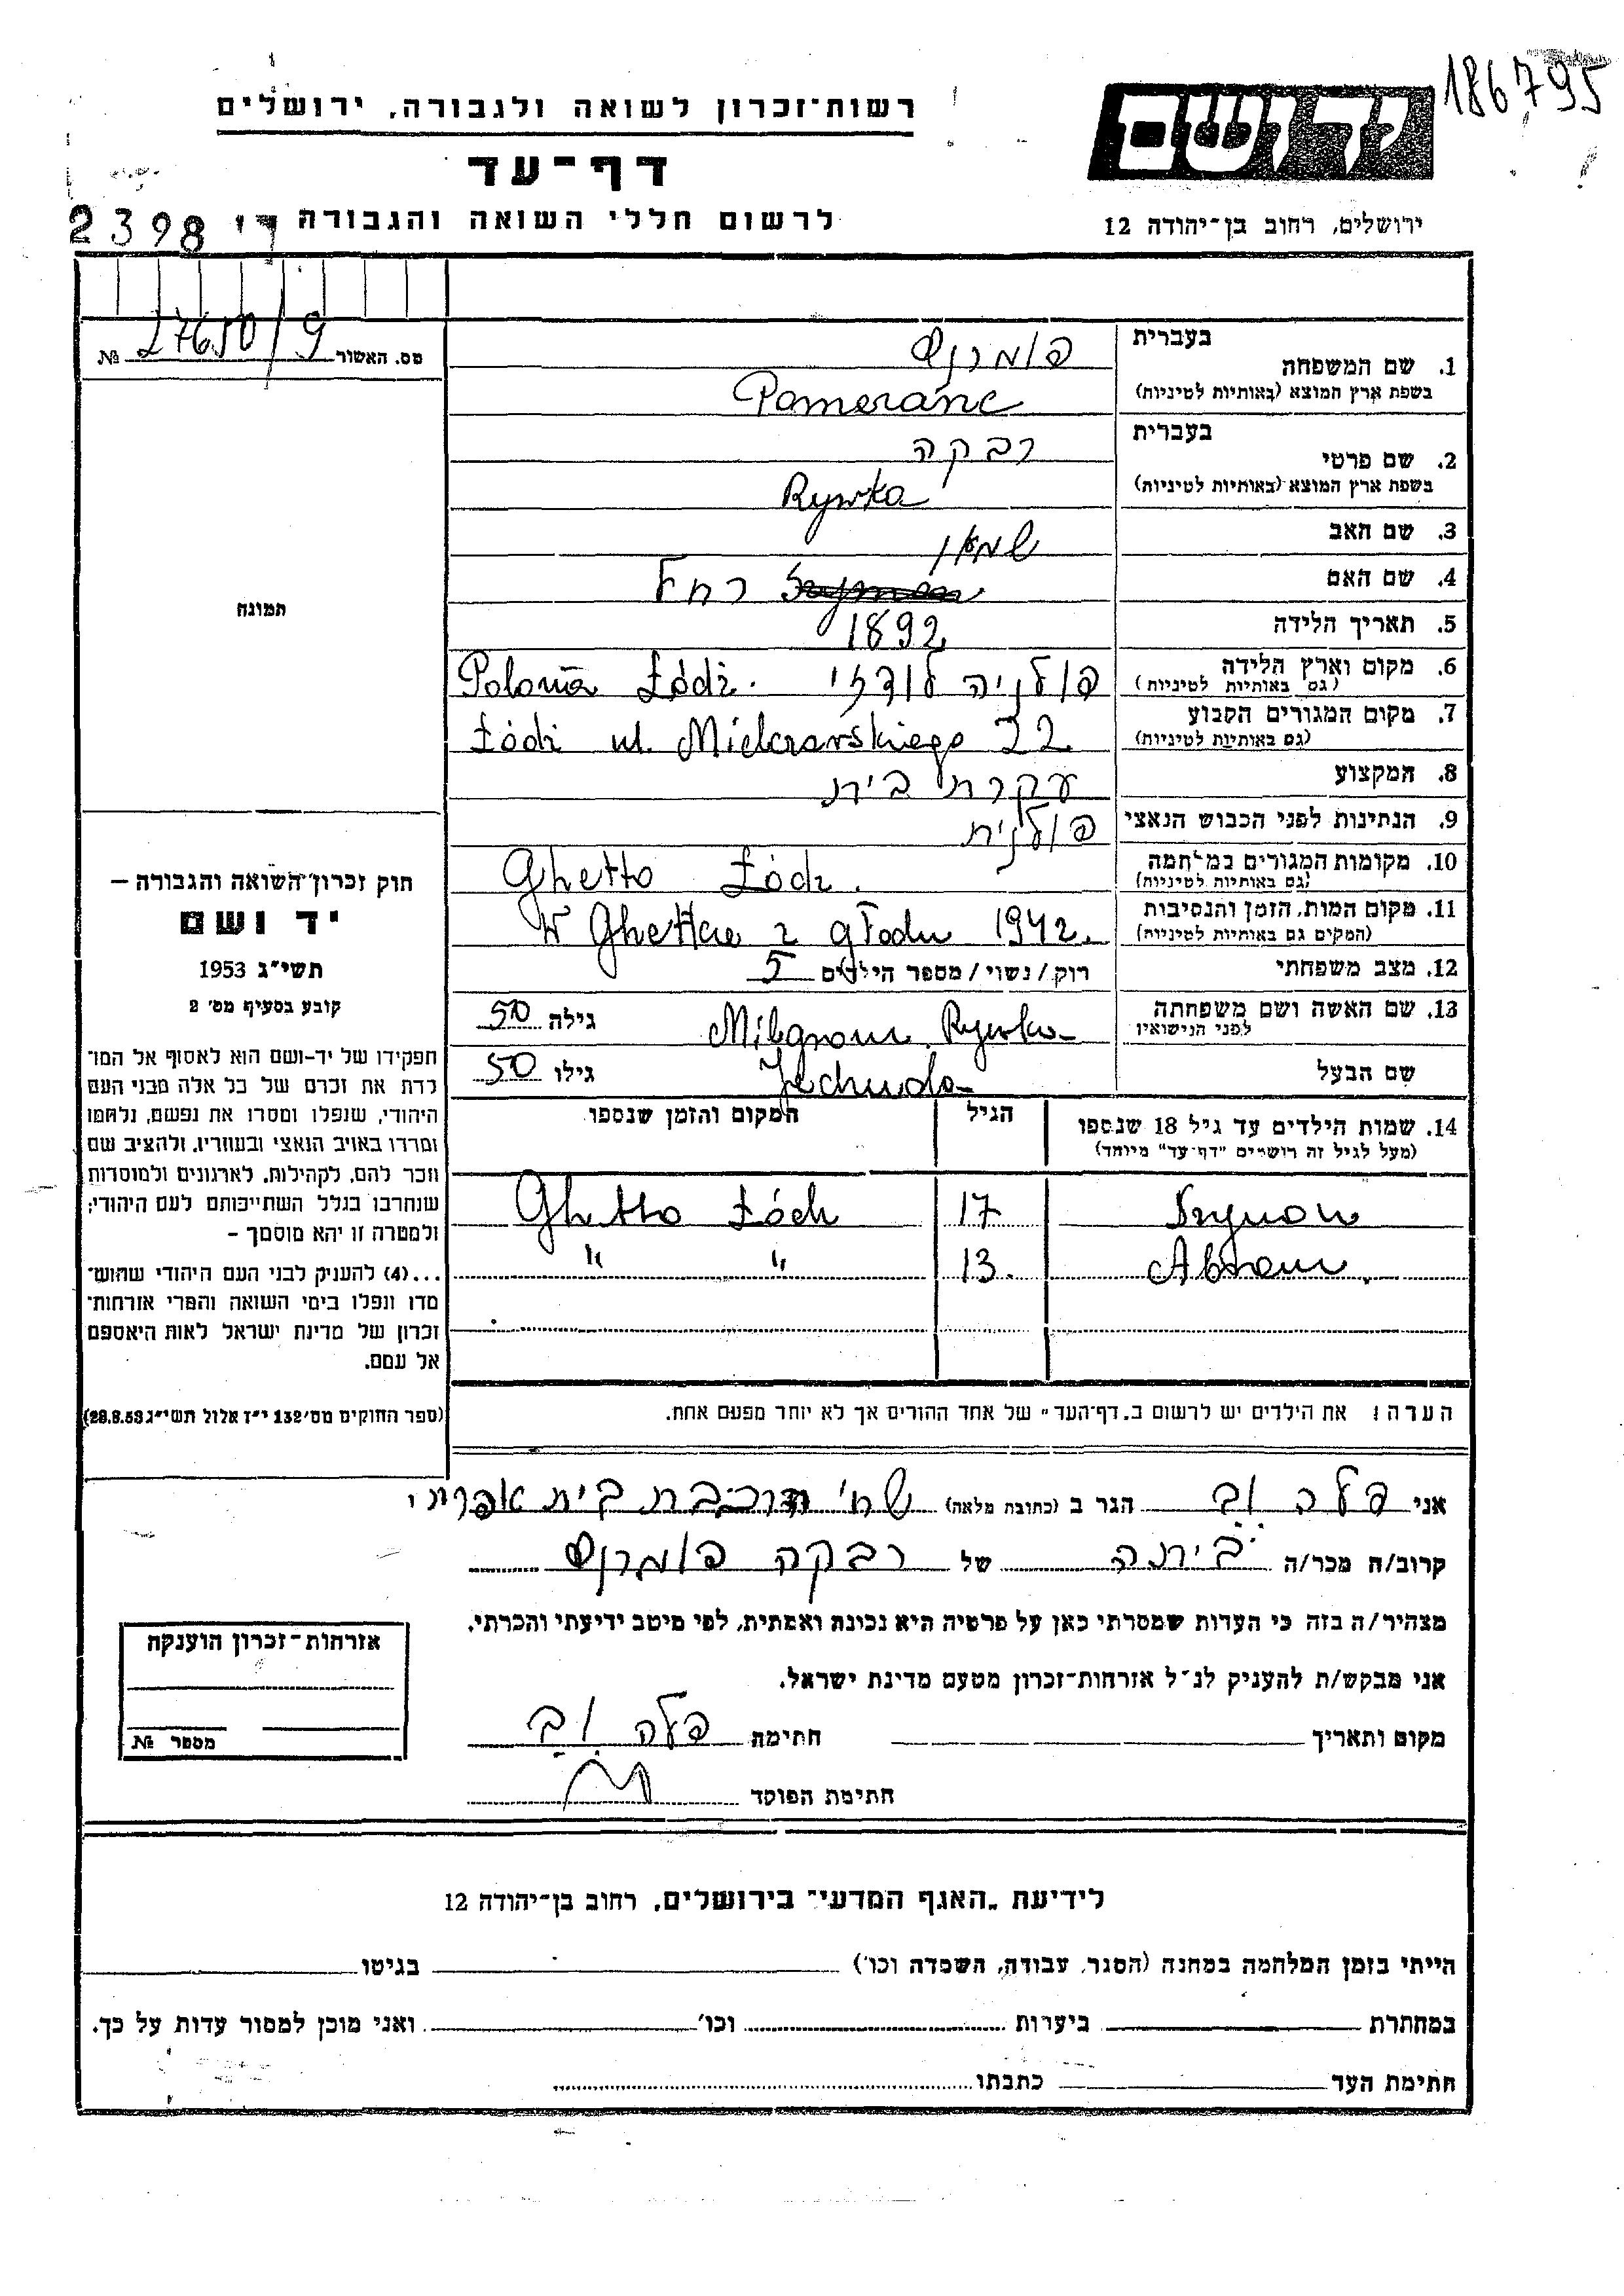 186795
רשות־זכרון לשואה ולגבורה, ירושלים
יד ושם
דף־עד
ירושלים, רחוב בן־יהודה 12
לרשום חללי השואה והגבורה
2398
בעברית
1. שם המשפחה
פומרנץ
בשפת ארץ המוצא (באותיות לטיניות)
Pomeranc
בעברית
2. שם פרטי
רבקה
בשפת ארץ המוצא (באותיות לטיניות)
Rywka
3. שם האב
שמעון
4. שם האם
רחל
5. תאריך הלידה
1892
6. מקום וארץ הלידה
(גם באותיות לטיניות)
פולניה לודז' Polonia Łódź.
7. מקום המגורים הקבוע
(גם באותיות לטיניות)
Łódź ul. Mielczarskiego 22
8. המקצוע
עקרת בית
9. הנתינות לפני הכבוש הנאצי
פולנית
10. מקומות המגורים במלחמה
(גם באותיות לטיניות)
Ghetto Łódz.
11. מקום המות, הזמן והנסיבות
(המקום גם באותיות לטיניות)
W Ghettcie z głodu 1942.
12. מצב משפחתי
רוק/נשוי/מספר הילדים 5
13. שם האשה ושם משפחתה
לפני הנישואין
Milgrom Rywka
גילה 50
שם הבעל
Jechuda
גילו 50
14. שמות הילדים עד גיל 18 שנספו
(מעל לגיל זה רושמים "דף־עד" מיוחד)
הגיל
המקום והזמן שנספו
Szymon 17 Ghetto Łódz
Abram. 13. " "
הערה: את הילדים יש לרשום ב„דף־העד" של אחד ההורים אך לא יותר מפעם אחת.
מס. האשור 27650/9 №
תמונה
חוק זכרון־השואה והגבורה —
יד ושם
תשי״ג 1953
קובע בסעיף מס׳ 2
תפקידו של יד־ושם הוא לאסוף אל המו־
לדת את זכרם של כל אלה מבני העם
היהודי, שנפלו ומסרו את נפשם, נלחמו
ומרדו באויב הנאצי ובעוזריו, ולהציב שם
וזכר להם, לקהילות, לארגונים ולמוסדות
שנחרבו בגלל השתייכותם לעם היהודי;
ולמטרה זו יהא מוסמך —
...(4) להעניק לבני העם היהודי שהוש־
מדו ונפלו בימי השואה והמרי אזרחות־
זכרון של מדינת ישראל לאות היאספם
אל עמם.
(ספר החוקים מס׳ 132 י״ז אלול תשי״ג 28.8.53)
אני פלה וב הגר ב (כתובת מלאה) שח' הרכבת בית אפרתי
קרוב/ה מכר/ה ביתה של רבקה פומרנץ
מצהיר/ה בזה כי העדות שמסרתי כאן על פרטיה היא נכונה ואמתית, לפי מיטב ידיעתי והכרתי.
אני מבקש/ת להעניק לנ״ל אזרחות־זכרון מטעם מדינת ישראל.
מקום ותאריך
חתימה פלה וב
חתימת הפוקד
אזרחות־זכרון הוענקה
מספר №
לידיעת „האגף המדעי" בירושלים, רחוב בן־יהודה 12
הייתי בזמן המלחמה במחנה (הסגר, עבודה, השמדה וכו׳) בגיטו
במחתרת ביערות וכו׳ ואני מוכן למסור עדות על כך.
חתימת העד כתבתו